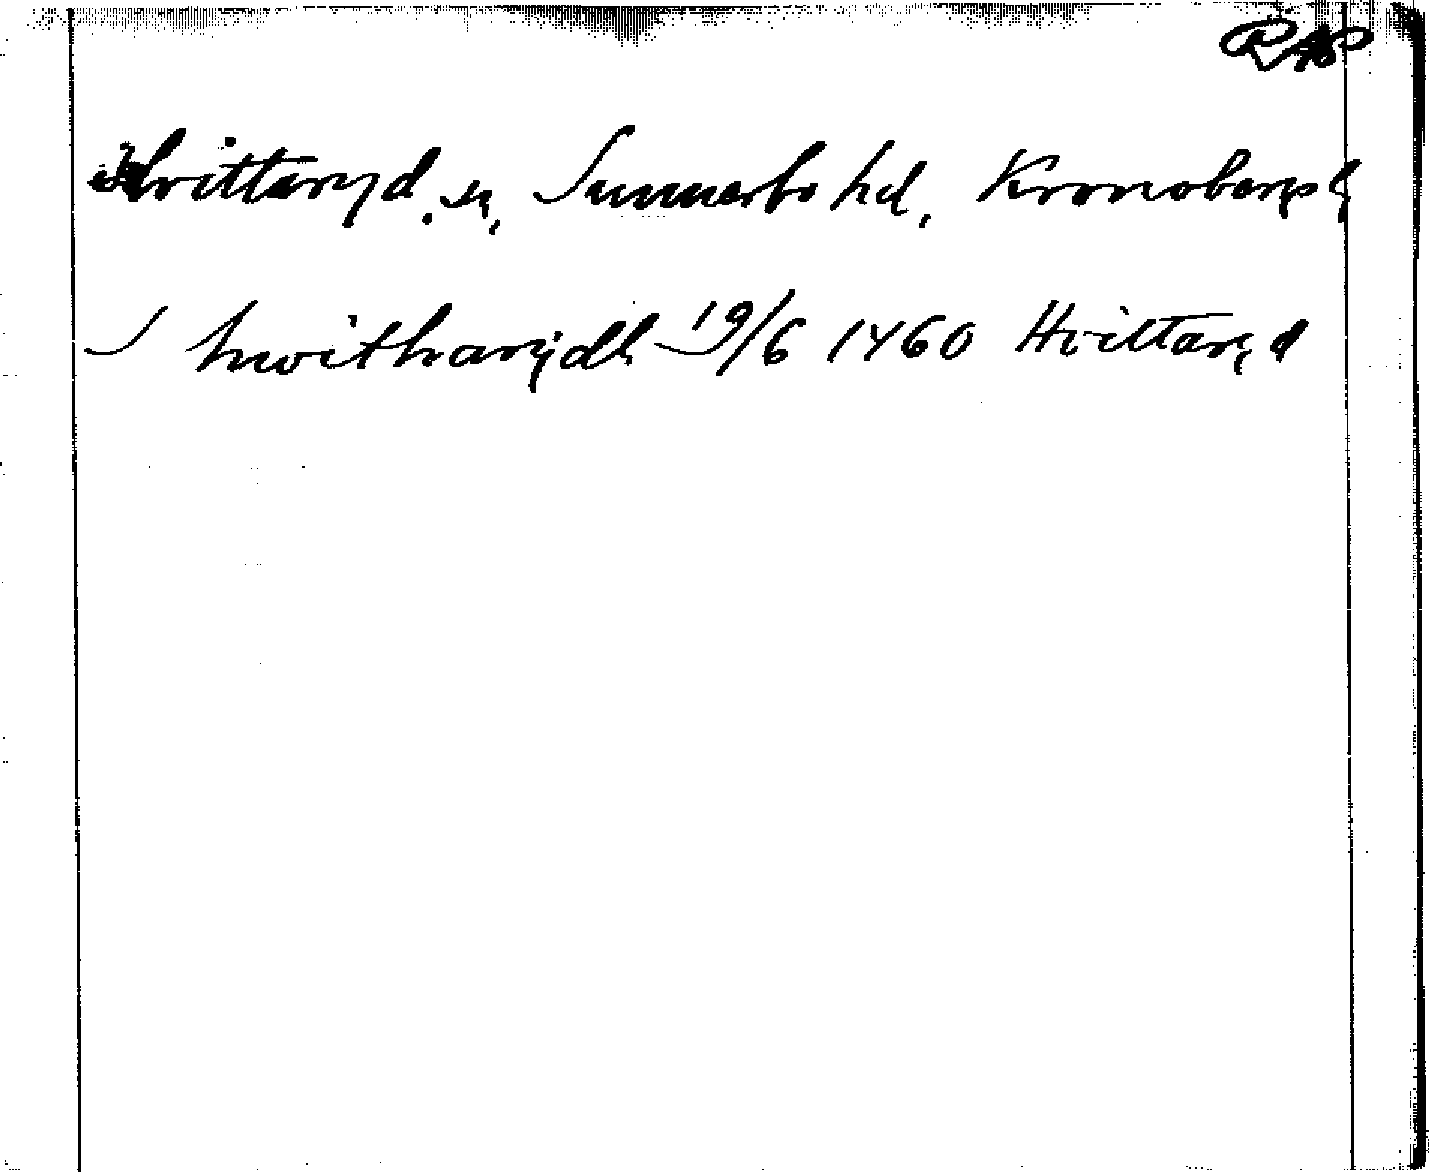 RAP
Hvittaryd. sn, Sunnerbo hd, Kronobergs l
J hwitharydh 19/6 1460 Hvittaryd